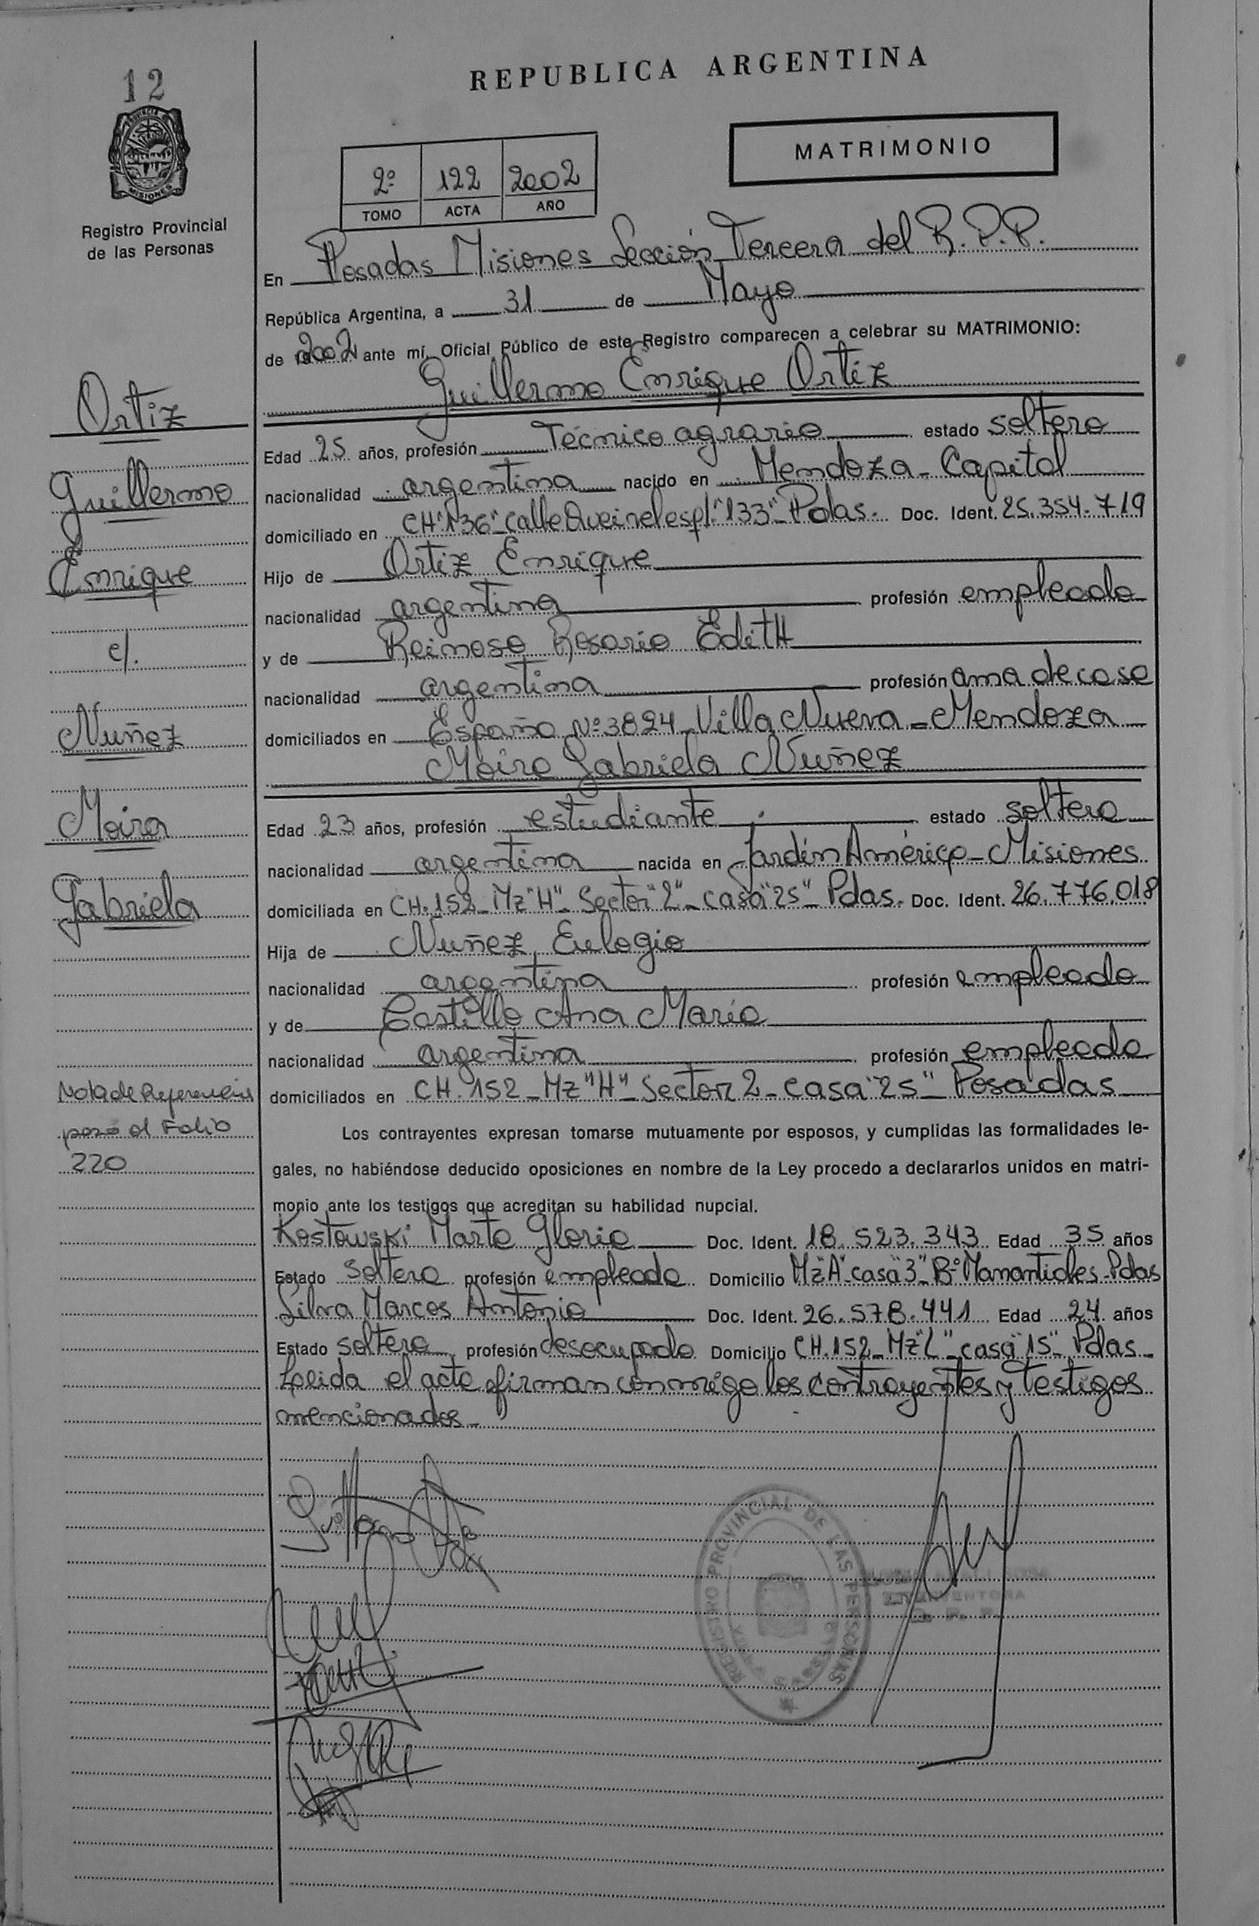 12
REPUBLICA ARGENTINA
MATRIMONIO
2º 122 2002
TOMO ACTA AÑO
PROVINCIA DE MISIONES
Registro Provincial
de las Personas
En Posadas Misiones Sección Tercera del R.P.P.
República Argentina, a 31 de Mayo
de 2002 ante mí, Oficial Público de este Registro comparecen a celebrar su MATRIMONIO:
Guillermo Enrique Ortiz
Edad 25 años, profesión Técnico agrario estado soltero
nacionalidad argentina nacido en Mendoza - Capital
domiciliado en CH"136" calle esp/."133" Pdas. Doc. Ident. 25.354.719
Hijo de Ortiz Enrique
nacionalidad argentina profesión empleado
y de Reinoso Rosario Edith
nacionalidad argentina profesión ama de casa
domiciliados en España Nº 3824 Villa Nueva - Mendoza
Moira Gabriela Nuñez
Edad 23 años, profesión estudiante estado soltera
nacionalidad argentina nacida en Jardín América - Misiones
domiciliada en CH.152 - Mz"H" - Sector"2" - casa"25" - Pdas. Doc. Ident. 26.776.018
Hija de Nuñez Eulogio
nacionalidad argentina profesión empleado
y de Castillo Ana María
nacionalidad argentina profesión empleada
domiciliados en CH.152 - Mz"H" - Sector 2 - casa"25" Posadas
Los contrayentes expresan tomarse mutuamente por esposos, y cumplidas las formalidades le-
gales, no habiéndose deducido oposiciones en nombre de la Ley procedo a declararlos unidos en matri-
monio ante los testigos que acreditan su habilidad nupcial.
Kostowski Marta Gloria Doc. Ident. 18.523.343 Edad 35 años
Estado soltera profesión empleada Domicilio Mz"A" casa"3" Bº Manantiales - Pdas
Silva Marcos Antonio Doc. Ident. 26.578.441 Edad 24 años
Estado soltero profesión desocupado Domicilio CH.152 - Mz"L" - casa"15" - Pdas
Leída el acta firman conmigo los contrayentes y testigos
mencionados
Ortiz
Guillermo
Enrique
c/.
Nuñez
Moira
Gabriela
Nota de Referencia
pasa al Folio
220
REGISTRO PROVINCIAL DE LAS PERSONAS